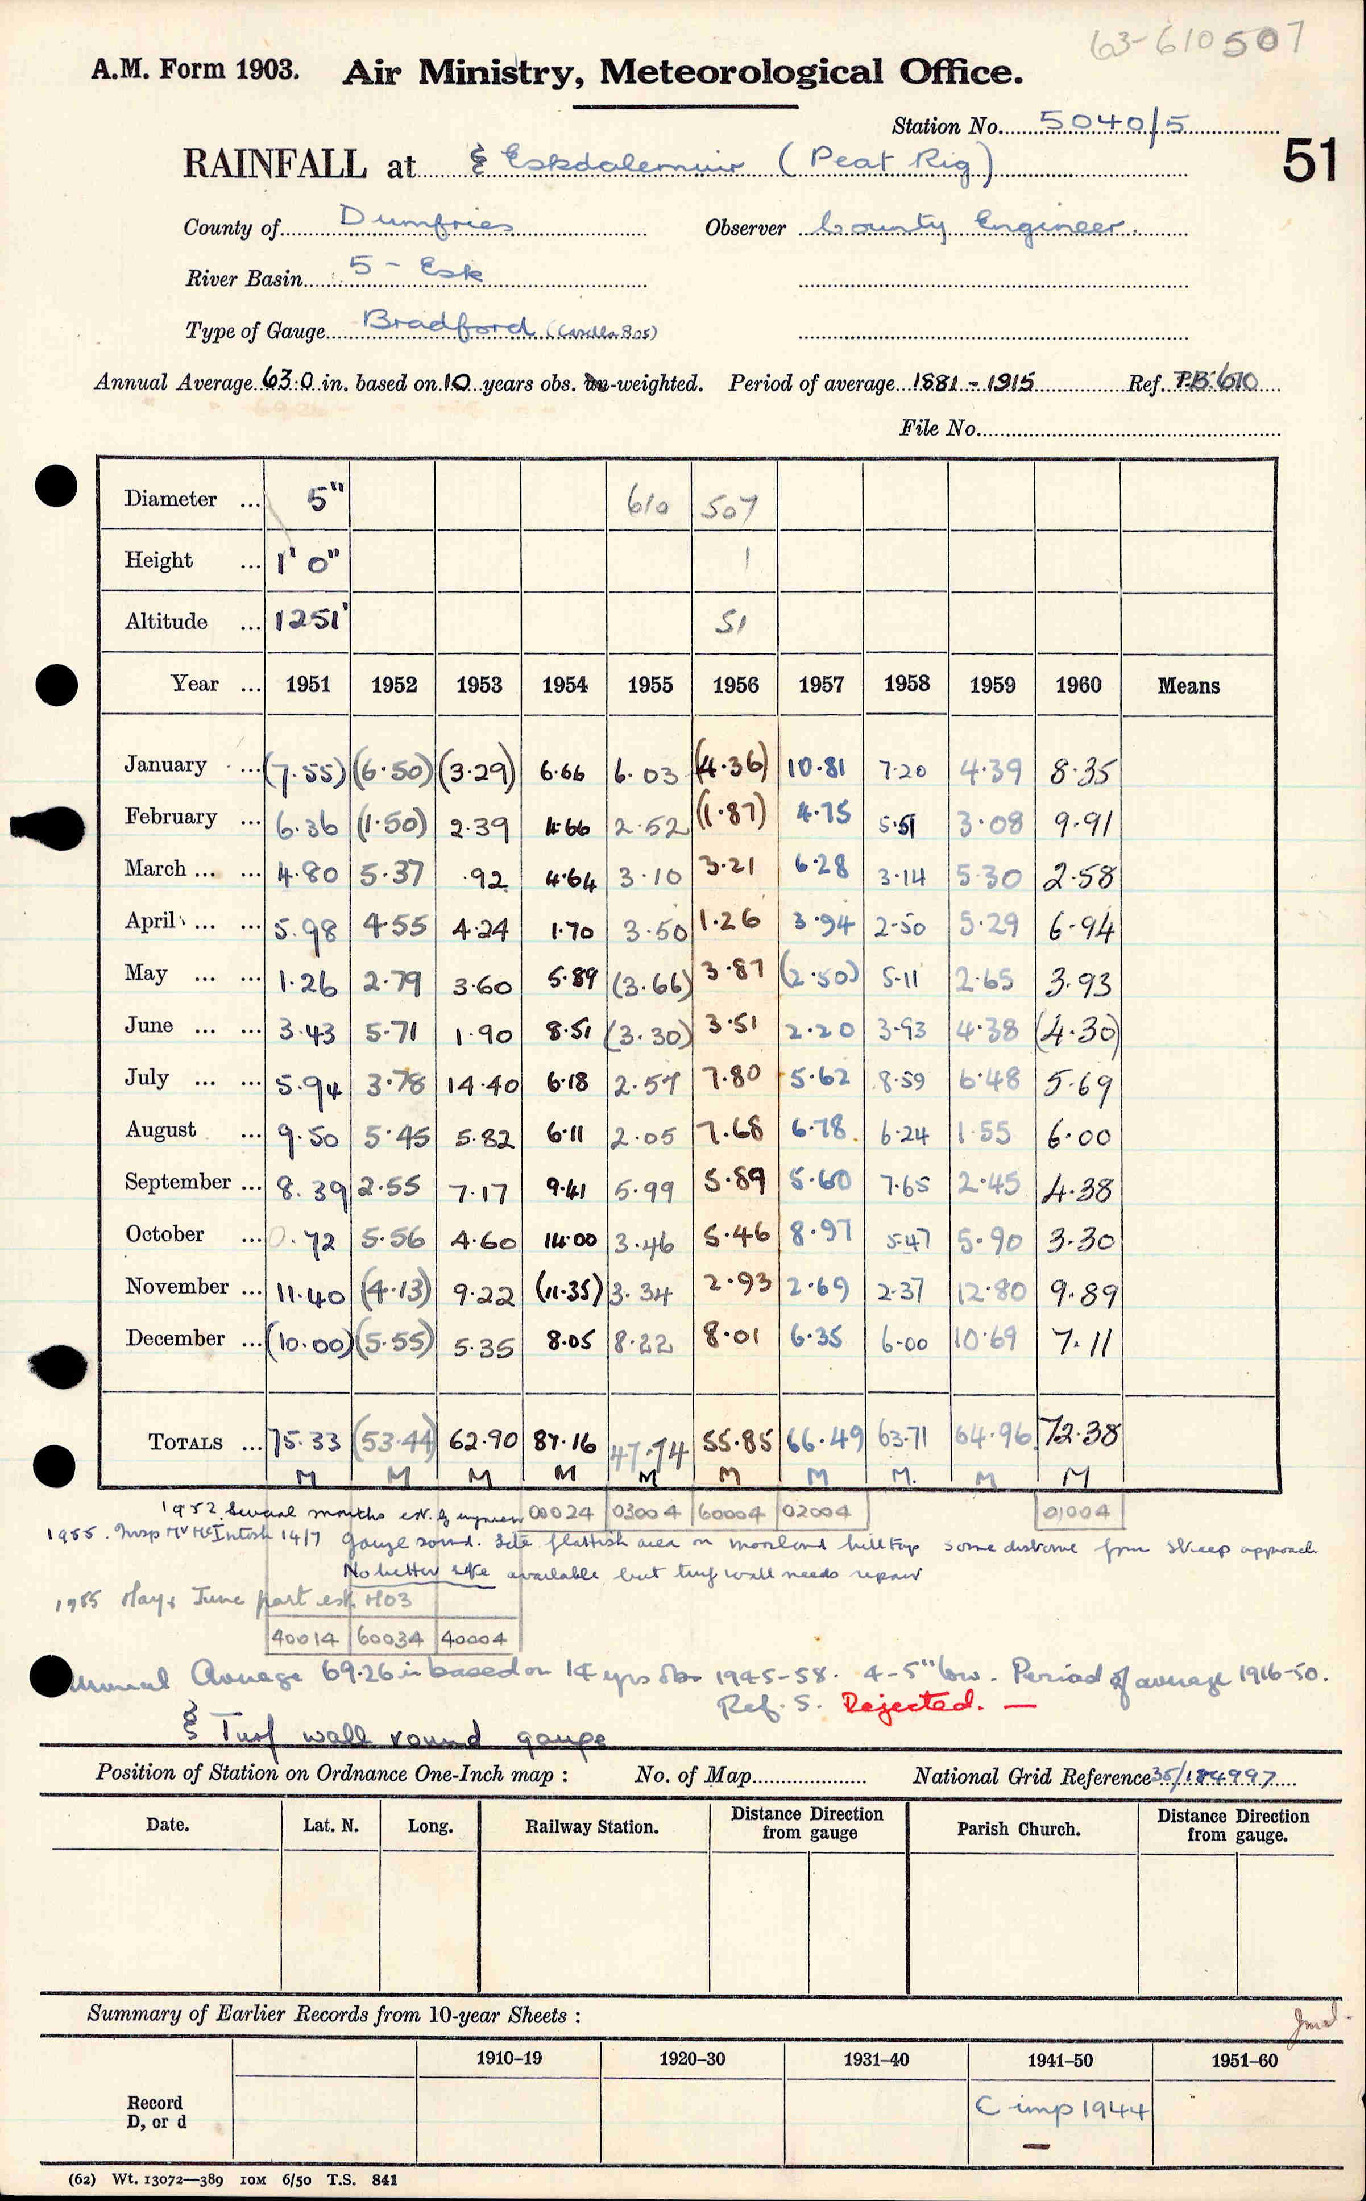 63-610507
A.M. Form 1903. Air Ministry, Meteorological Office.
Station No. 5040/5
51
RAINFALL at Eskdalemuir (Peat Rig)
County of Dumfries Observer County Engineer.
River Basin 5 - Esk
Type of Gauge Bradford (Casella 805)
Annual Average 63.0 in. based on 10 years obs. un-weighted. Period of average 1881 - 1915 Ref. P.B. 610
File No.
Diameter ... 5" 610 507
Height ... 1' 0" 1
Altitude ... 1251' 51
Year ... 1951 1952 1953 1954 1955 1956 1957 1958 1959 1960 Means
January ... (7.55) (6.50) (3.29) 6.66 6.03 (4.36) 10.81 7.20 4.39 8.35
February ... 6.36 (1.50) 2.39 4.66 2.52 (1.87) 4.75 5.51 3.08 9.91
March ... ... 4.80 5.37 .92 4.64 3.10 3.21 6.28 3.14 5.30 2.58
April ... ... 5.98 4.55 4.24 1.70 3.50 1.26 3.94 2.50 5.29 6.94
May ... ... 1.26 2.79 3.60 5.89 (3.66) 3.87 (2.50) 5.11 2.65 3.93
June ... ... 3.43 5.71 1.90 8.51 (3.30) 3.51 2.20 3.93 4.38 (4.30)
July ... ... 5.94 3.78 14.40 6.18 2.57 7.80 5.62 8.59 6.48 5.69
August ... 9.50 5.45 5.82 6.11 2.05 7.68 6.78 6.24 1.55 6.00
September ... 8.39 2.55 7.17 9.41 5.99 5.89 5.60 7.65 2.45 4.38
October ... 0.72 5.56 4.60 14.00 3.46 5.46 8.97 5.47 5.90 3.30
November ... 11.40 (4.13) 9.22 (11.35) 3.34 2.93 2.69 2.37 12.80 9.89
December ... (10.00) (5.55) 5.35 8.05 8.22 8.01 6.35 6.00 10.69 7.11
TOTALS ... 75.33 (53.44) 62.90 87.16 47.74 55.85 66.49 63.71 64.96 72.38
M M M M M M M M. M M
1952 Several months est. by engineer 00024 03004 60004 02004 01004
1955. Insp Mr McIntosh 14/7 Gauge sound. Site flattish area on moorland hilltop some disturbance from sheep approach
No better site available but turf wall needs repair
1955 May & June part est. M03
40014 60034 40004
Annual Average 69.26 in based on 14 yrs obs 1945-58. 4-5" low. Period of average 1916-50.
Ref. S. Rejected. —
Turf wall round gauge
Position of Station on Ordnance One-Inch map : No. of Map National Grid Reference 35/184997
Date. Lat. N. Long. Railway Station. Distance Direction from gauge Parish Church. Distance Direction from gauge.
Summary of Earlier Records from 10-year Sheets :
1910–19 1920–30 1931–40 1941–50 1951–60
Record
D, or d
C imp 1944
—
(62) Wt. 13072—389 10M 6/50 T.S. 841